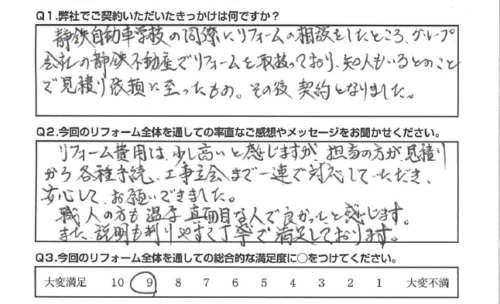 Q1.弊社でご契約いただいたきっかけは何ですか?
静鉄自動車学校の同僚にリフォームの相談をしたところ、グループ
会社の静鉄不動産でリフォームを取扱っており、知人もいるとのこと
で見積り依頼に至ったもの。その後 契約となりました。
Q2.今回のリフォーム全体を通しての率直なご感想やメッセージをお聞かせください。
リフォーム費用は、少し高いと感じますが 担当の方が 見積り
から 各種手続、工事立会まで一連で対応して いただき、
安心して お願いできました。
職人の方も 温厚 真面目な人で良かったと感じます。
また、説明も判りやすく丁寧で満足しております。
Q3.今回のリフォーム全体を通しての総合的な満足度に○をつけてください。
大変満足 10 9 8 7 6 5 4 3 2 1 大変不満